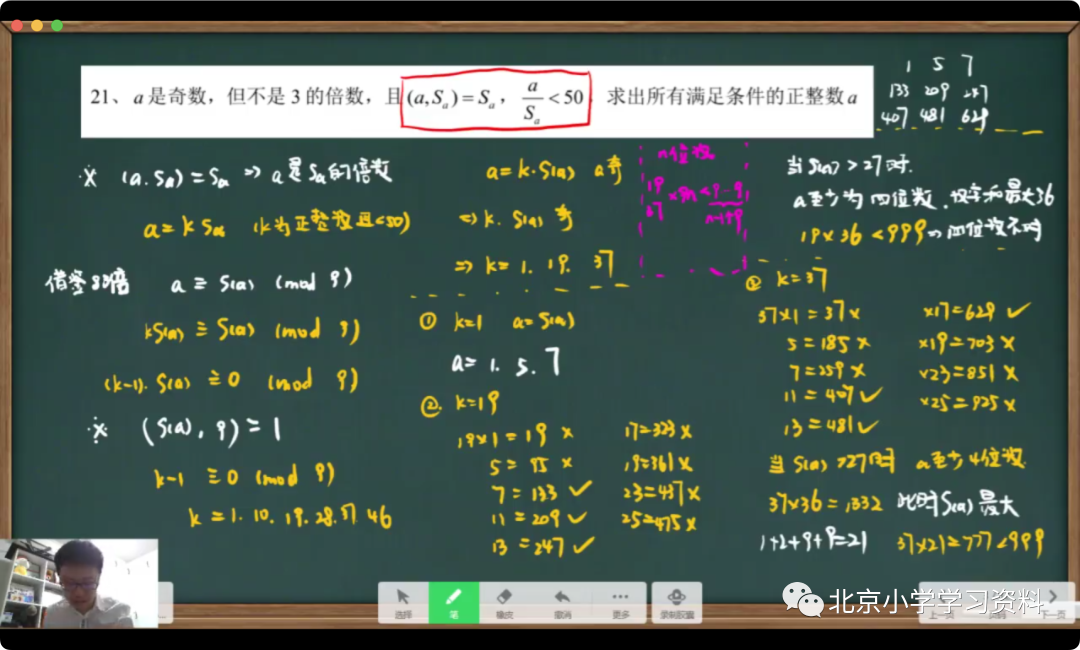 21、a是奇数，但不是3的倍数，且(a,Sₐ)=Sₐ，a/Sₐ<50 求出所有满足条件的正整数a
1 5 7
133 209 247
407 481 629
(a.Sa)=Sa ⇒ a是Sa的倍数
a=kSa (k为正整数且<50)
a≡S(a) (mod 9)
kS(a)≡S(a) (mod 9)
(k-1).S(a)≡0 (mod 9)
(S(a),9)=1
k-1≡0 (mod 9)
k=1.10.19.28.37.46
a=k.S(a) a奇
⇒k.S(a)奇
⇒k=1.19.37
① k=1 a=S(a)
a=1.5.7
②. k=19
19×1=19 ×
5=95 ×
7=133 ✓
11=209 ✓
13=247 ✓
17=323 ×
19=361 ×
23=437 ×
25=475 ×
n位数
19
37
当S(a)>27时.
a至少为四位数.数字和最大36
19×36<999⇒四位数不对
② k=37
37×1=37 ×
5=185 ×
7=259 ×
11=407 ✓
13=481 ✓
×17=629 ✓
×19=703 ×
×23=851 ×
×25=925 ×
当S(a)>27时 a至少4位数
37×36=1332 此时S(a)最大
1+2+9+9=21 37×21=777<999
选择
笔
橡皮
撤消
更多
录制胶囊
上一页
下一页
北京小学学习资料